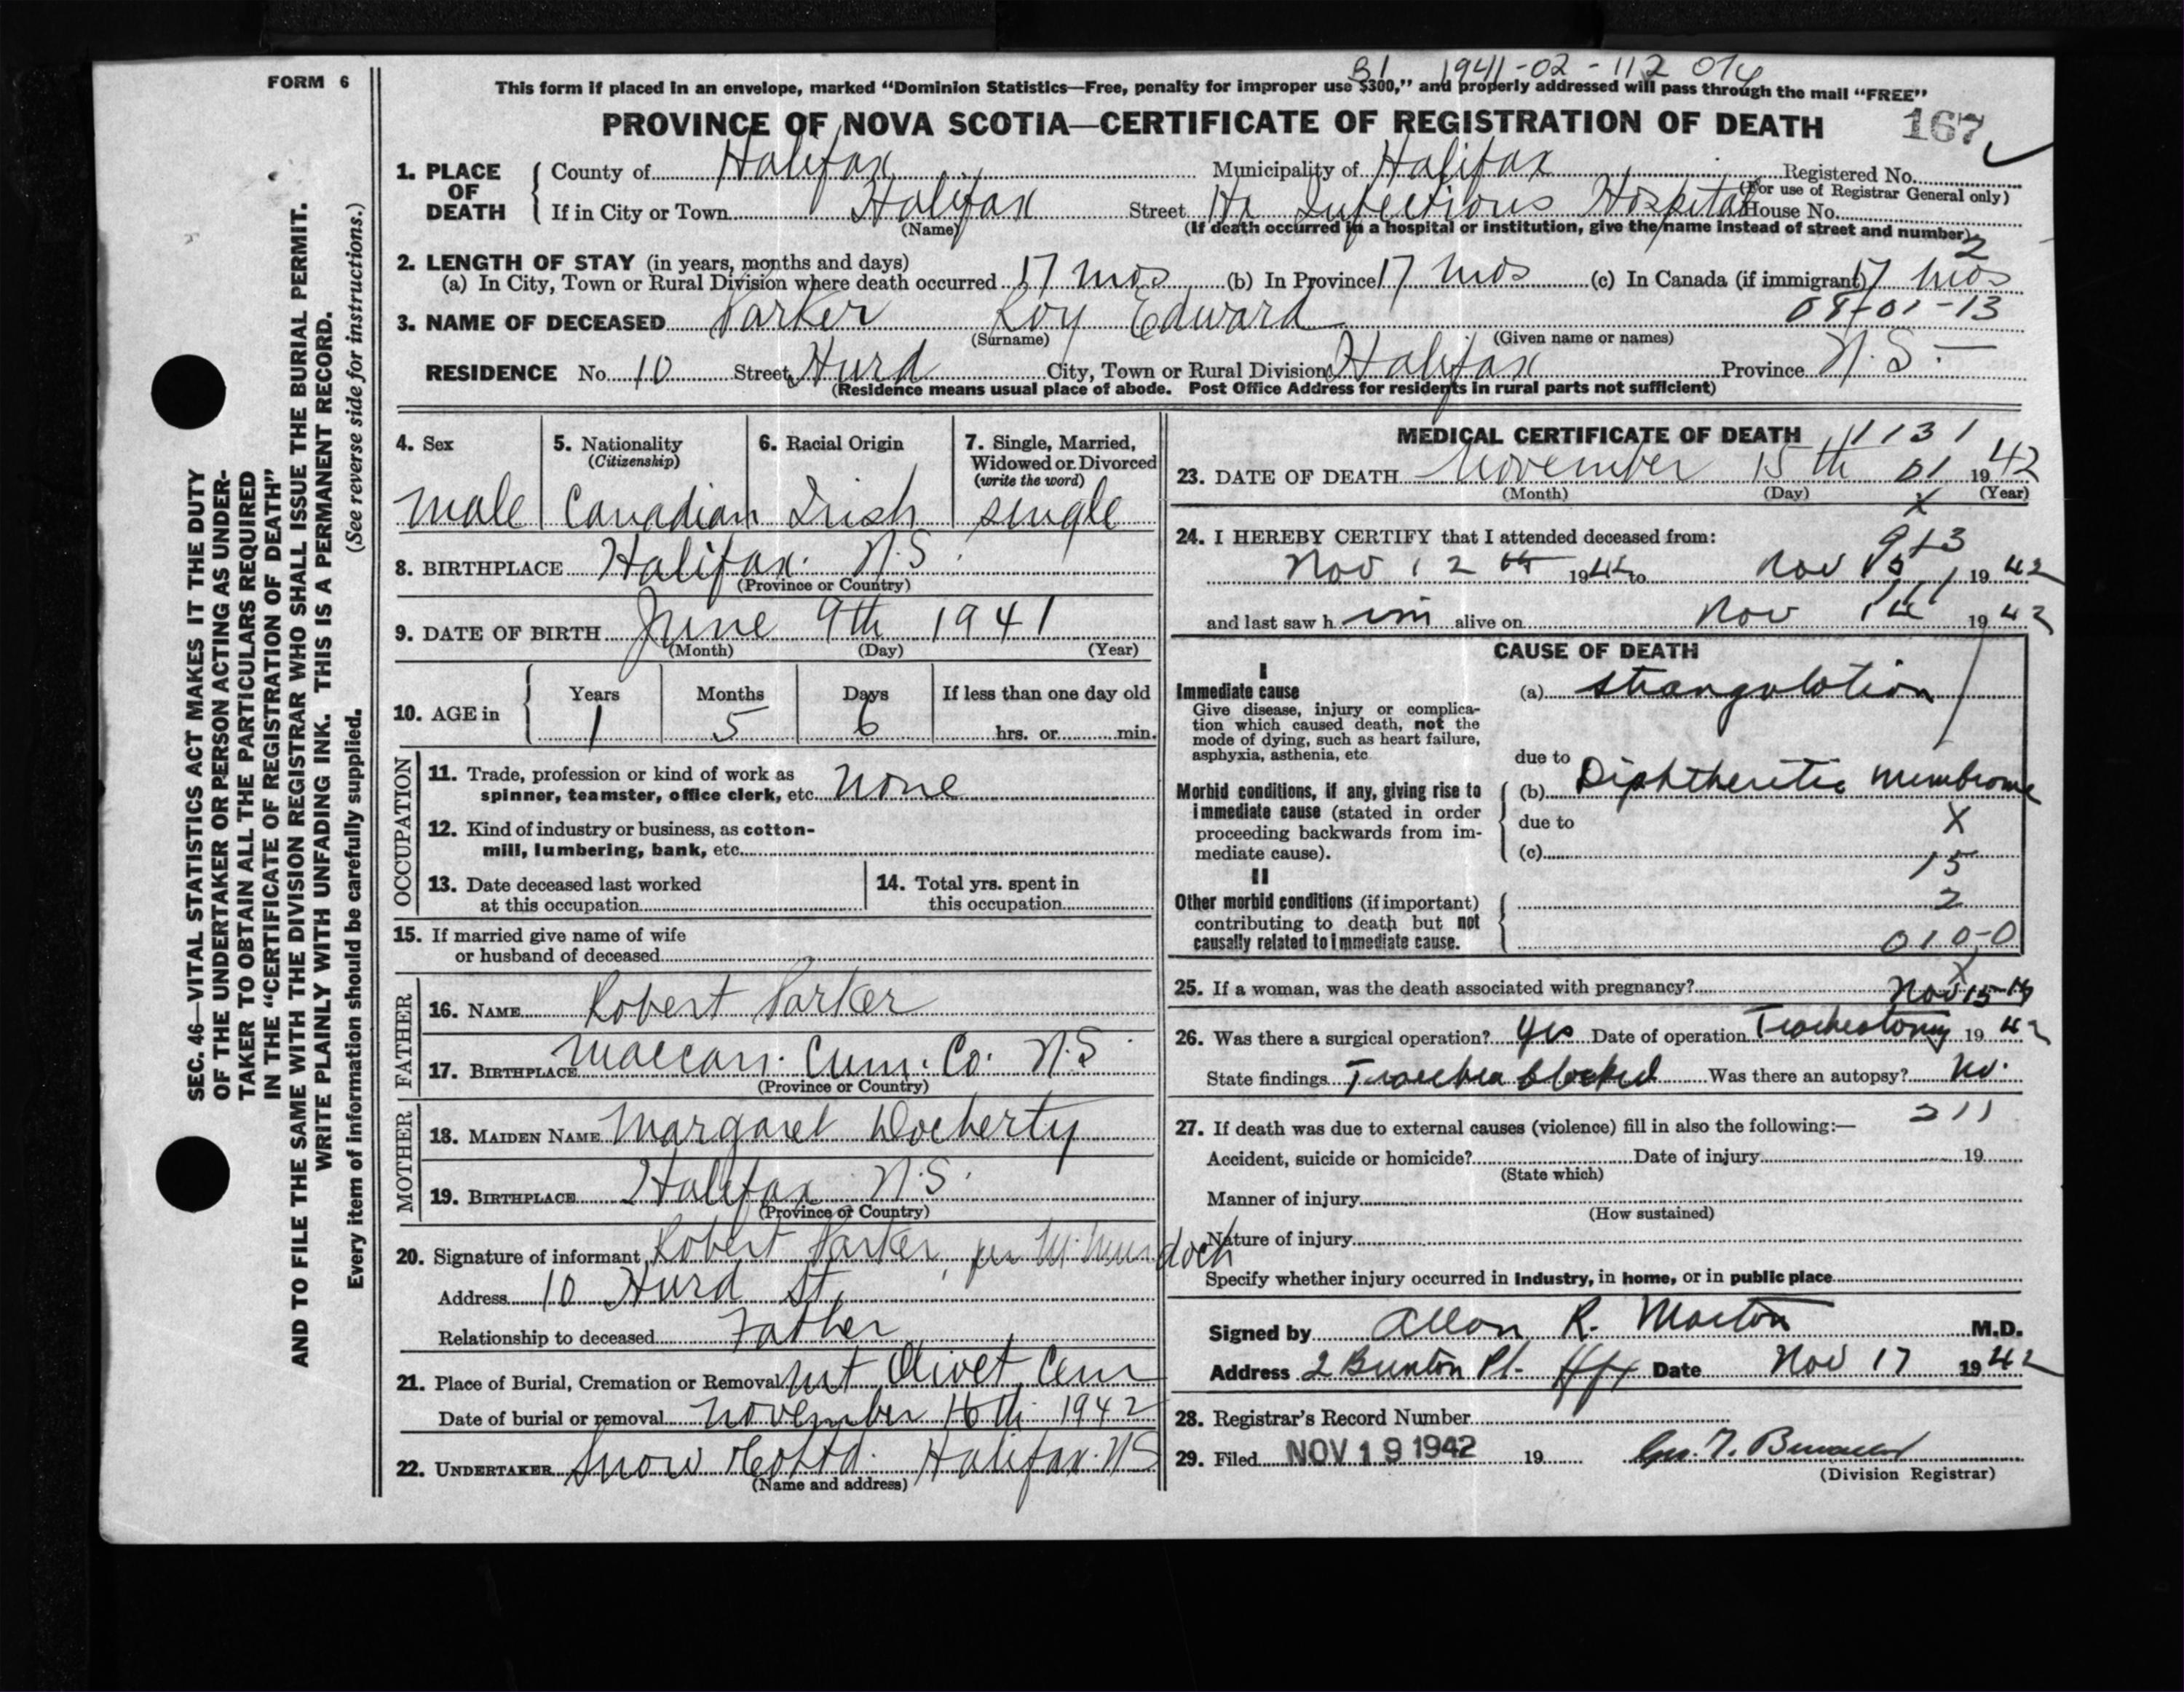 FORM 6
B1 1941-02-112 014
This form if placed in an envelope, marked “Dominion Statistics—Free, penalty for improper use $300,” and properly addressed will pass through the mail “FREE”
PROVINCE OF NOVA SCOTIA—CERTIFICATE OF REGISTRATION OF DEATH 167
1. PLACE OF DEATH County of Halifax Municipality of Halifax Registered No.
(For use of Registrar General only)
If in City or Town Halifax Street Hx Infectious Hospital House No.
(Name) (If death occurred in a hospital or institution, give the name instead of street and number)
2
2. LENGTH OF STAY (in years, months and days)
(a) In City, Town or Rural Division where death occurred 17 mos (b) In Province 17 mos (c) In Canada (if immigrant) 17 mos
08-01-13
3. NAME OF DECEASED Parker Roy Edward
(Surname) (Given name or names)
RESIDENCE No. 10 Street Hurd City, Town or Rural Division Halifax Province N.S.
(Residence means usual place of abode. Post Office Address for residents in rural parts not sufficient)
4. Sex 5. Nationality (Citizenship) 6. Racial Origin 7. Single, Married, Widowed or Divorced (write the word)
male Canadian Irish single
8. BIRTHPLACE Halifax. N.S.
(Province or Country)
9. DATE OF BIRTH June 9th 1941
(Month) (Day) (Year)
10. AGE in Years Months Days If less than one day old
1 5 6 hrs. or min.
OCCUPATION
11. Trade, profession or kind of work as
spinner, teamster, office clerk, etc. None
12. Kind of industry or business, as cotton-
mill, lumbering, bank, etc.
13. Date deceased last worked
at this occupation
14. Total yrs. spent in
this occupation
15. If married give name of wife
or husband of deceased
FATHER
16. NAME Robert Parker
17. BIRTHPLACE Maccan. Cum. Co. N.S.
(Province or Country)
MOTHER
18. MAIDEN NAME Margaret Docherty
19. BIRTHPLACE Halifax N.S.
(Province or Country)
20. Signature of informant Robert Parker, per M Murdoch
Address 10 Hurd St.
Relationship to deceased Father
21. Place of Burial, Cremation or Removal Mt Olivet Cem
Date of burial or removal November 16th 1942
22. UNDERTAKER Snow & Co Ltd. Halifax. NS
(Name and address)
MEDICAL CERTIFICATE OF DEATH 1131
23. DATE OF DEATH November 15th 01 1942
(Month) (Day) (Year)
x
24. I HEREBY CERTIFY that I attended deceased from:
9+3
Nov 12th 1942 to Nov 15 1942
and last saw h im alive on Nov 14 1942
CAUSE OF DEATH
I
Immediate cause
Give disease, injury or complica-
tion which caused death, not the
mode of dying, such as heart failure,
asphyxia, asthenia, etc
(a) strangulation
due to
Morbid conditions, if any, giving rise to
immediate cause (stated in order
proceeding backwards from im-
mediate cause).
(b) Diphtheritic membrane
due to X
(c)
15
II
Other morbid conditions (if important)
contributing to death but not
causally related to immediate cause.
2
010-0
X
25. If a woman, was the death associated with pregnancy?
Nov 15-19
26. Was there a surgical operation? Yes Date of operation Tracheotomy 1942
State findings Trachea blocked Was there an autopsy? No.
211
27. If death was due to external causes (violence) fill in also the following:—
Accident, suicide or homicide? Date of injury 19
(State which)
Manner of injury
(How sustained)
Nature of injury
Specify whether injury occurred in industry, in home, or in public place
Signed by Allan R. Morton M.D.
Address 2 Bunton Pl. Hfx Date Nov 17 1942
28. Registrar's Record Number
29. Filed NOV 19 1942 19
(Division Registrar)
SEC. 46—VITAL STATISTICS ACT MAKES IT THE DUTY
OF THE UNDERTAKER OR PERSON ACTING AS UNDER-
TAKER TO OBTAIN ALL THE PARTICULARS REQUIRED
IN THE “CERTIFICATE OF REGISTRATION OF DEATH”
AND TO FILE THE SAME WITH THE DIVISION REGISTRAR WHO SHALL ISSUE THE BURIAL PERMIT.
WRITE PLAINLY WITH UNFADING INK. THIS IS A PERMANENT RECORD.
Every item of information should be carefully supplied. (See reverse side for instructions.)